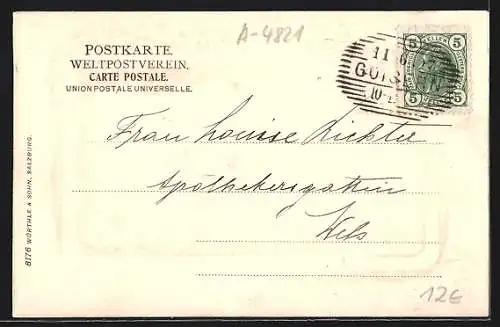 A-4821
POSTKARTE.
WELTPOSTVEREIN.
CARTE POSTALE.
UNION POSTALE UNIVERSELLE.
11
10
5 5
5 5
Frau Louise Richter
Apothekersgattin
Wels
8176 WÜRTHLE & SOHN, SALZBURG.
12€